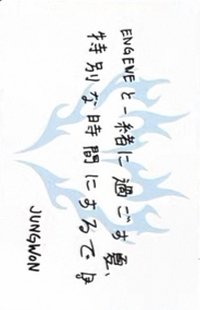 ENGENEと一緒に過ごす夏、
特別な時間にするでな
JUNGWON